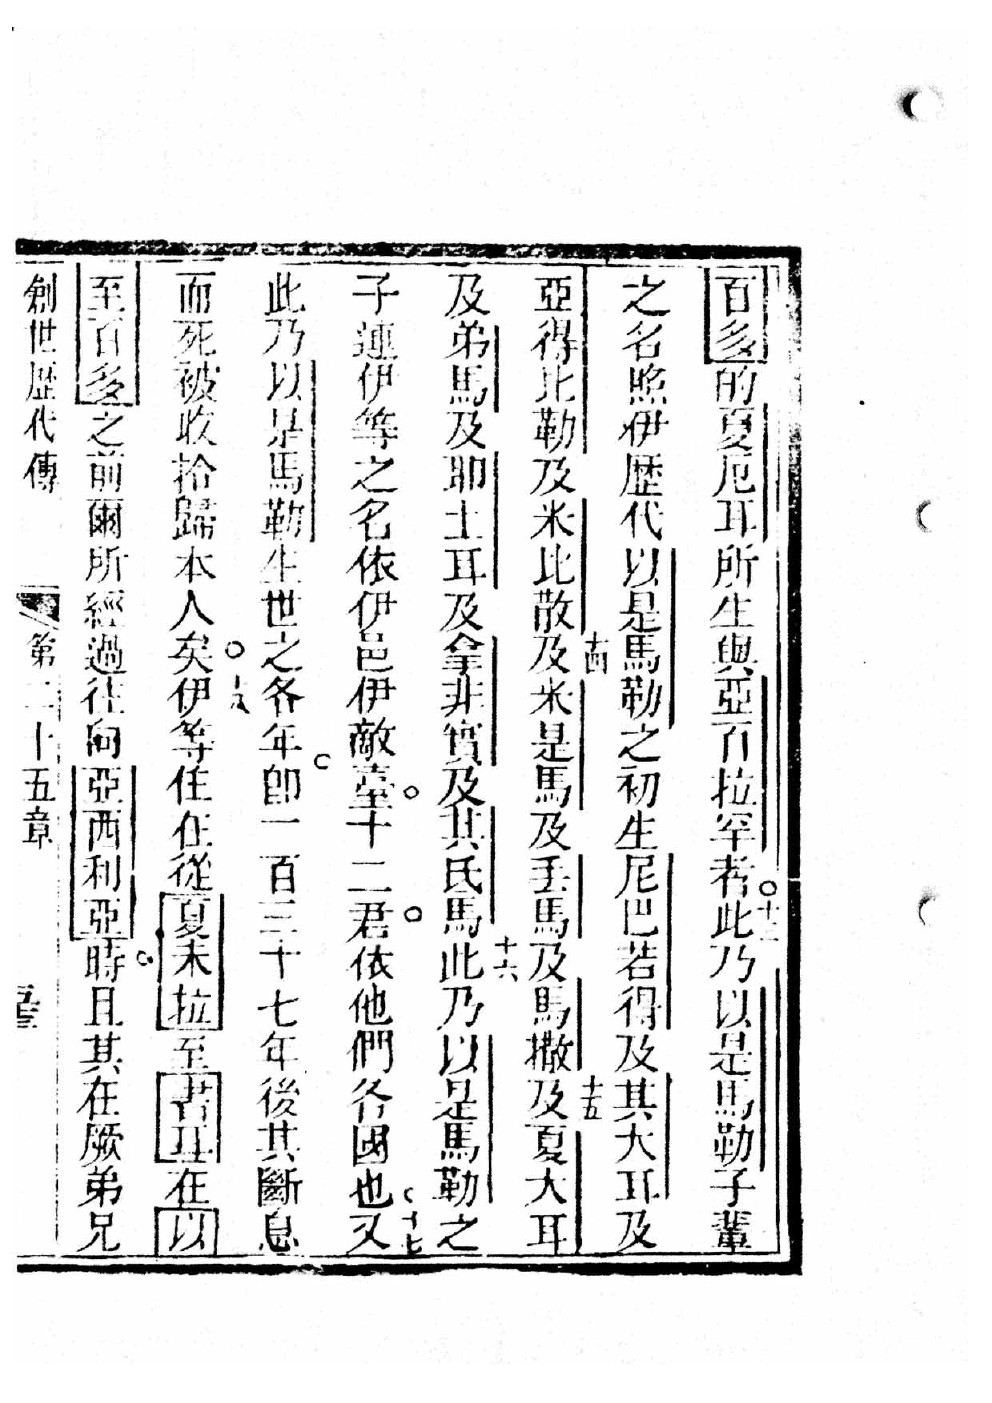 百多的夏厄耳所生與亞百拉罕者十三此乃以是馬勒子輩
之名照伊歷代以是馬勒之初生尼巴若得及其大耳及
亞得比勒及米比散及十四米是馬及丢馬及馬撒及十五夏大耳
及弟馬及耶土耳及拿非實及其氏馬十六此乃以是馬勒之
子連伊等之名依伊邑伊敵臺十二君依他們各國也十七又
此乃以是馬勒生世之各年即一百三十七年後其斷息
而死被收拾歸本人矣十八伊等住在從夏未拉至書耳在以
至百多之前爾所經過往向亞西利亞時且其在厥弟兄
創世歷代傳 第二十五章